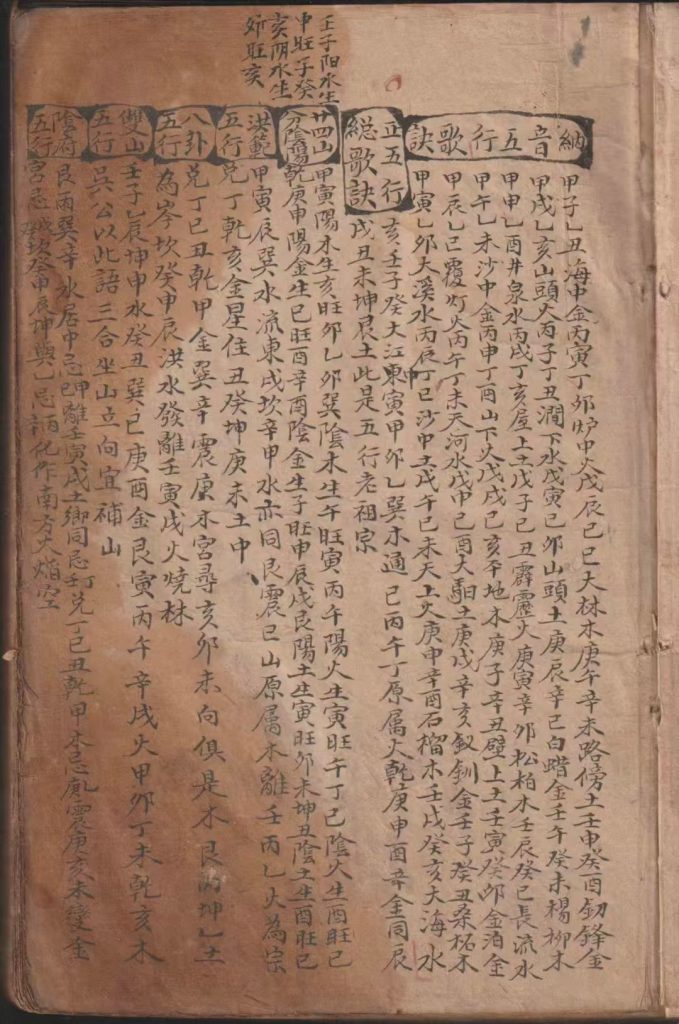 納音五行歌訣
甲子乙丑海中金丙寅丁卯炉中火戊辰己巳大林木庚午辛未路傍土壬申癸酉釰鋒金
甲戌乙亥山頭火丙子丁丑澗下水戊寅己卯山頭土庚辰辛巳白蜡金壬午癸未楊柳木
甲申乙酉井泉水丙戌丁亥屋上土戊子己丑霹靂火庚寅辛卯松柏木壬辰癸巳長流水
甲午乙未沙中金丙申丁酉山下火戊戌己亥平地木庚子辛丑壁上土壬寅癸卯金泊金
甲辰乙巳覆灯火丙午丁未天河水戊申己酉大馹土庚戌辛亥釵釧金壬子癸丑桑柘木
甲寅乙卯大溪水丙辰丁巳沙中土戊午己未天上火庚申辛酉石榴木壬戌癸亥大海水
正五行
總歌訣
亥壬子癸大江東寅甲卯乙巽木通巳丙午丁原属火乾庚申酉辛金同辰
戌丑未坤艮土此是五行老祖宗
壬子阳水生
申旺子癸
亥阴水生
夘旺亥
廿四山
分陰陽
甲寅陽木生亥旺卯乙卯巽陰木生午旺寅丙午陽火生寅旺午丁巳陰火生酉旺巳
乾庚申陽金生巳旺酉辛酉陰金生子旺申辰戌艮陽土生寅旺卯未坤丑陰土生酉旺巳
洪範
五行
甲寅辰巽水流東戌坎辛申水亦同艮震巳山原属木離壬丙乙火為宗
兌丁乾亥金星住丑癸坤庚未土中
八卦
五行
兌丁巳丑乾甲金巽辛震庚木宮尋亥卯未向俱是木艮丙坤乙土
為岑坎癸申辰洪水發離壬寅戌火燒林
雙山
五行
壬子乙辰坤申水癸丑巽巳庚酉金艮寅丙午辛戌火甲卯丁未乾亥木
吳公以此語三合坐山立向宜補山
陰府
五行
艮丙巽辛水居中忌甲巳離壬寅戌土鄉同忌壬丁兌丁巳丑乾甲木忌震庚亥未變金
宮忌坎癸申辰坤與乙忌化作南方火焰空